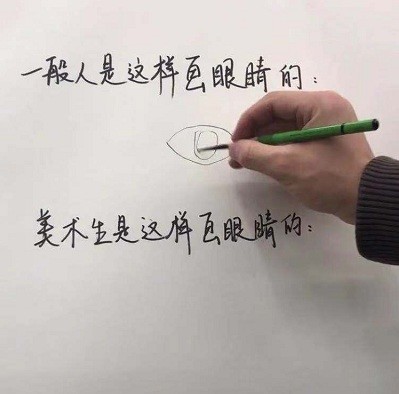 一般人是这样画眼睛的：
美术生是这样画眼睛的：